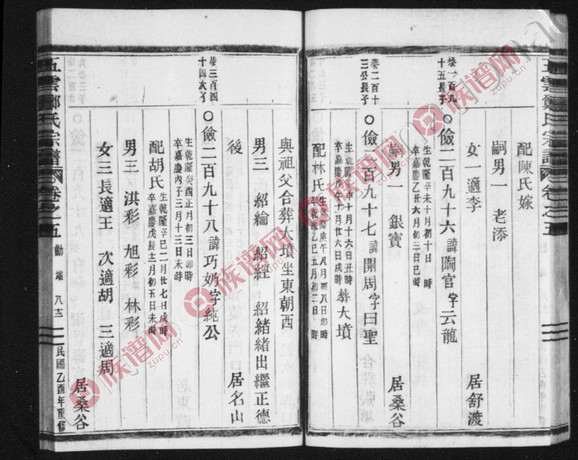 五雲鄭氏宗譜 卷之五
配陳氏嫁
嗣男一 老添
榮一百九十五長子
○儉二百九十六 諱陶官 字云龍
生乾隆辛未十月初十日 時
卒嘉慶 丑六月初三日巳時
女一適李 居舒渡
男一 銀寶
榮二百十三公長子
○儉二百九十七 諱開周 字曰聖
卒嘉慶 十月廿六日戌時 葬大墳
配林氏
居桑谷
與祖父合葬大墳坐東朝西
男三 紹綸 紹經 紹緒 緒出繼正德
後 居名山
榮三百四十四次子
○儉二百九十八 諱巧奶 字純公
生乾隆癸酉正月初三日卯時
卒嘉慶丙子三月十三日未時
配胡氏 生乾隆辛巳二月廿七日戌時
卒嘉慶戊辰十二月初五日未時
男三 淇彩 旭彩 林彩
女三長適王 次適胡 三適周
居桑谷
五雲鄭氏宗譜 卷之五 勤雄 八十 民國乙酉年重修
族谱网
zupu.cn
族谱网
zupu.cn
族谱网
zupu.cn